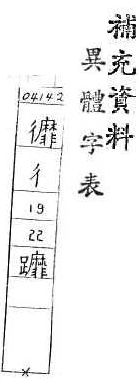 補充資料
異體字表
04142
彳
19
22